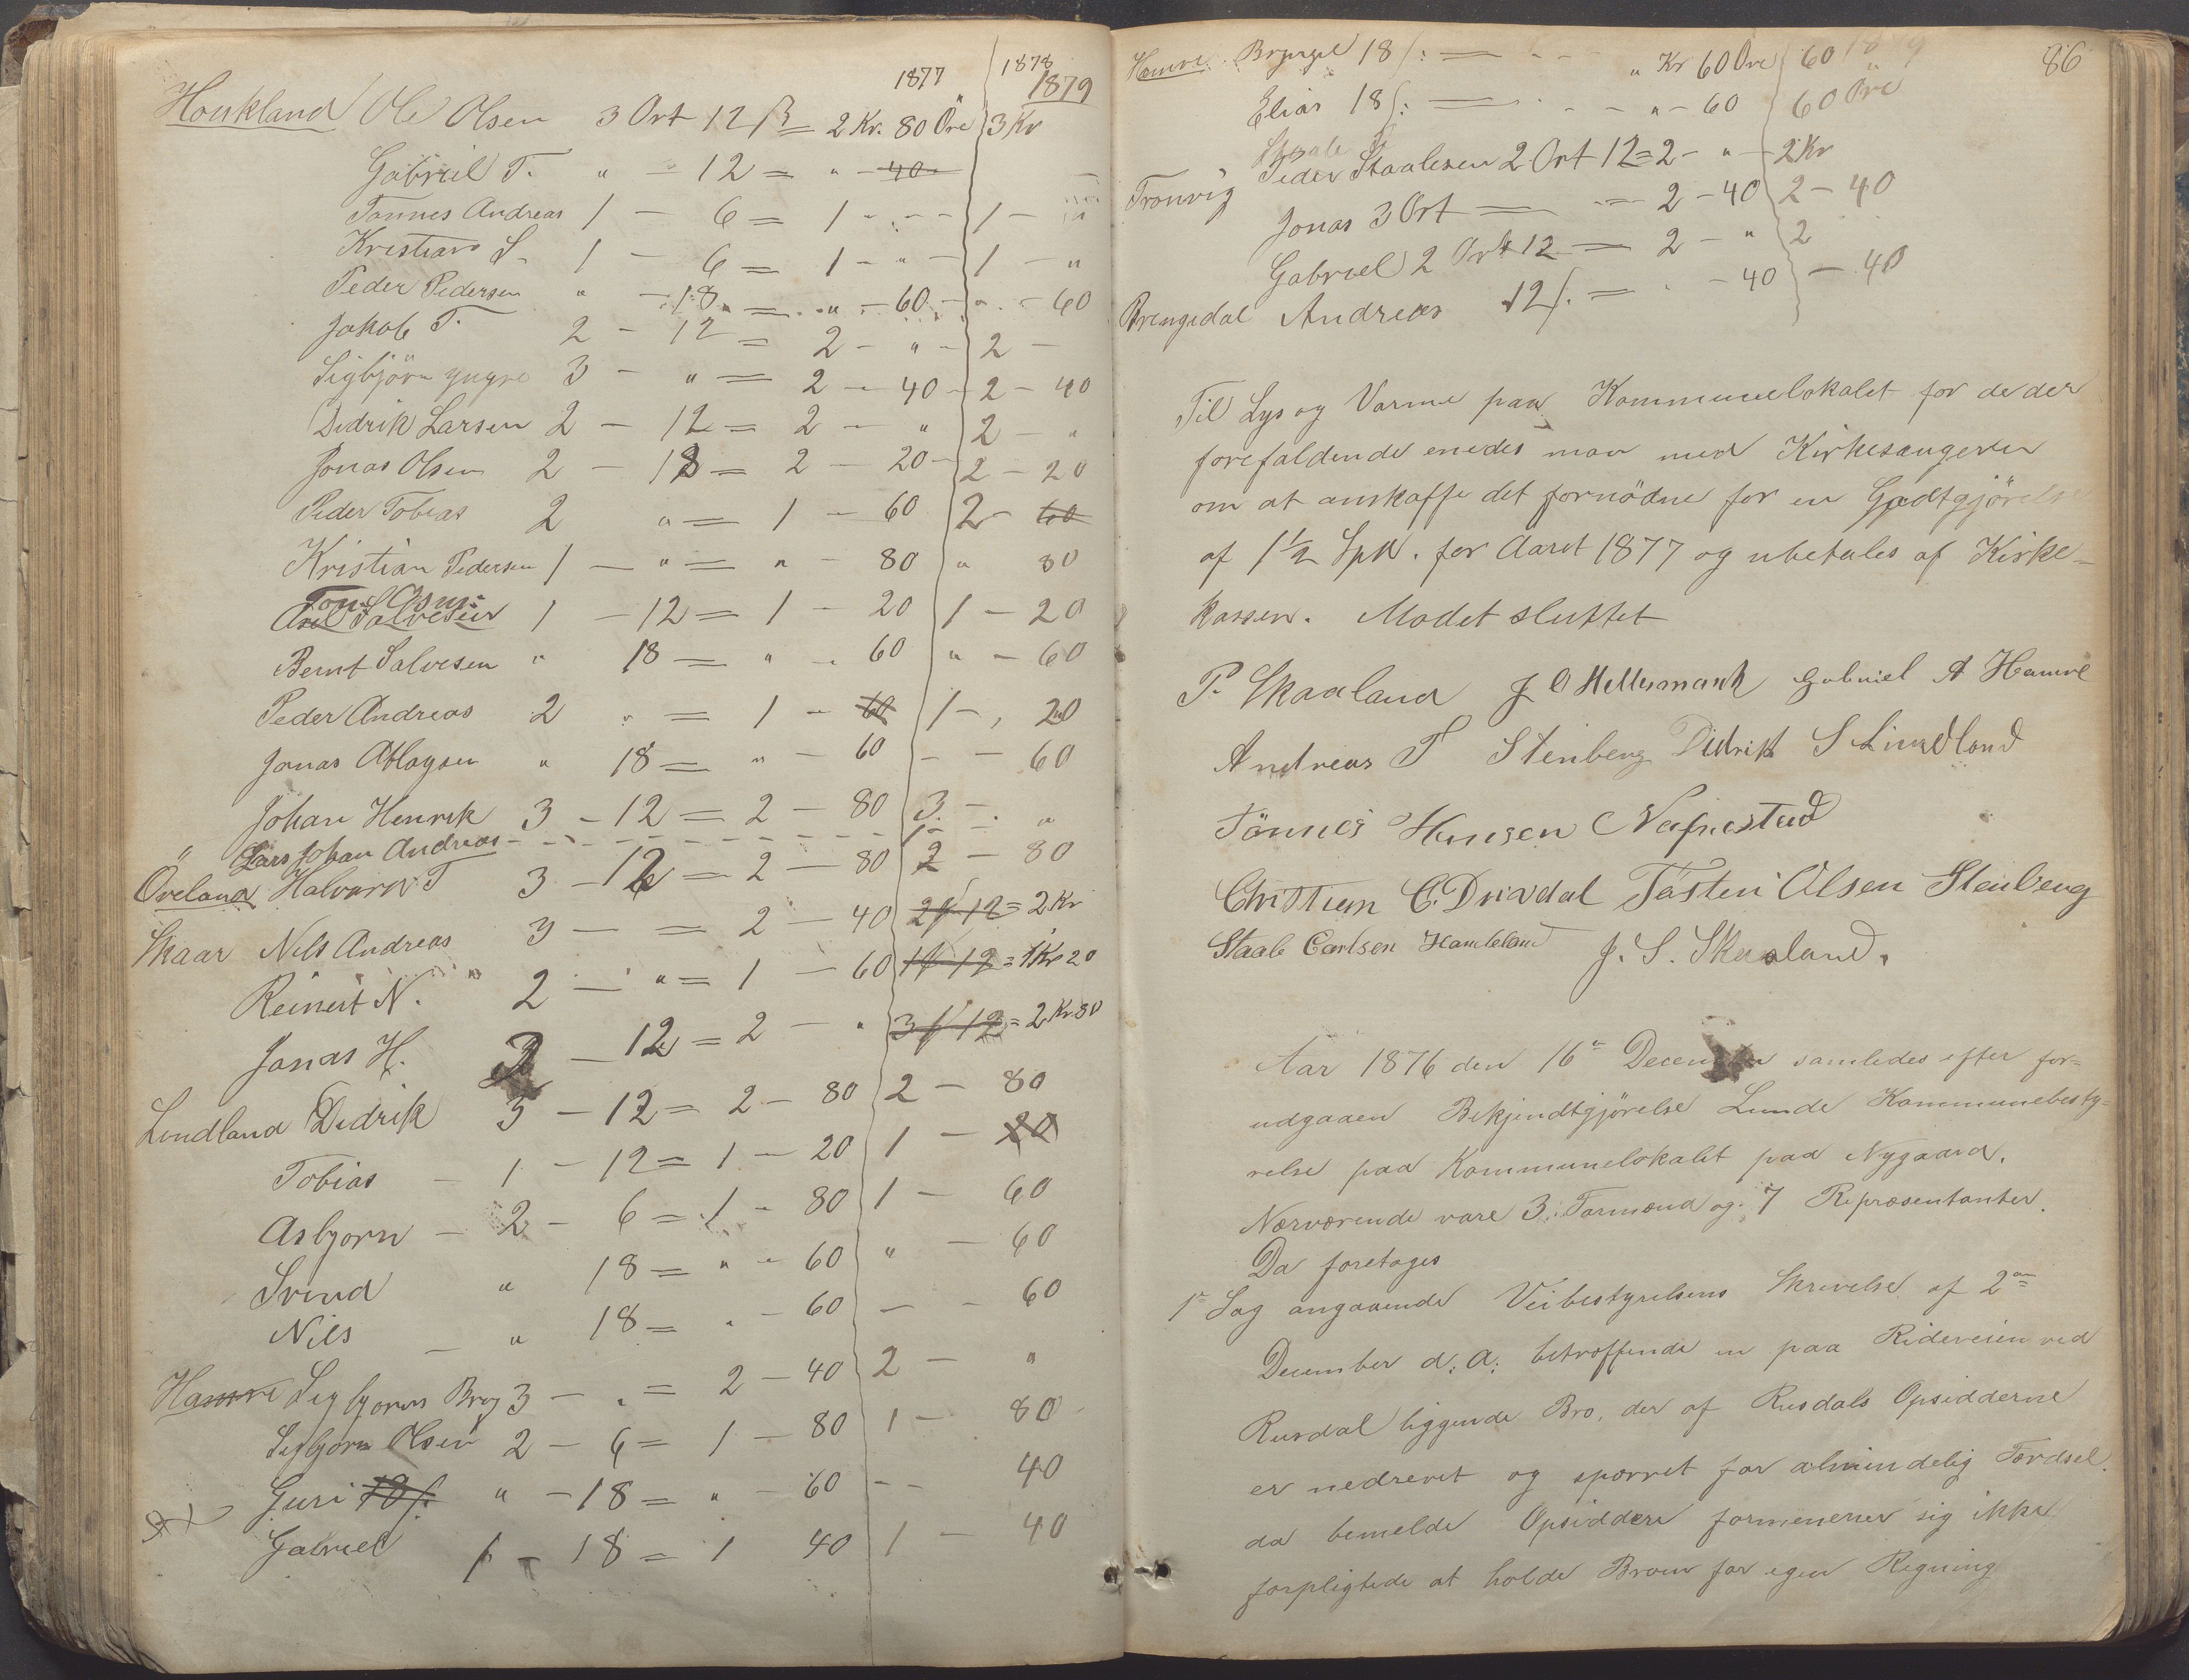 1877 1878
1879
Houkland Ole Olsen 3 Ort 12 ß = 2 Kr. 80 Öre 3 Kr
Gabriel T. " - 12 = " - 40
Tønnes Andreas 1 - 6 = 1 - " - 1 - "
Kristian S. 1 - 6 = 1 - " - 1 - "
Peder Pedersen " - 18 = " - 60 - " - 60
Jakob T. 2 - 12 = 2 - " - 2 -
Sigbjörn yngre 3 - " = 2 - 40 - 2 - 40
Didrik Larsen 2 - 12 = 2 - " 2 - "
Jonas Olsen 2 - 18 = 2 - 20 - 2 - 20
Peder Tobias 2 " = 1 - 60 2 - 60
Kristian Pedersen 1 - " = " - 80 " 80
Salvesen 1 - 12 = 1 - 20 1 - 20
Bernt Salvesen " 18 = " - 60 " - 60
Peder Andreas 2 " = 1 - 60 1 - , 20
Jonas Atlagsen " 18 = " - 60 - - 60
Johan Henrik 3 - 12 = 2 - 80 3 - "
" Lars Johan Andreas - - - - - - - 1 -
Öveland Halvard T 3 - 12 = 2 - 80 2 - 80
Skaar Nils Andreas 3 - = 2 - 40 2 / 12 = 2 Kr
Reinert N. " 2 - " = 1 - 60 1 / 12 = 1 Kr 20
Jonas H. 2 - 12 = 2 - " 3 / 12 = 2 Kr 80
Lindland Didrik 3 - 12 = 2 - 80 2 - 80
Tobias - 1 - 12 = 1 - 20 1 - 20
Asbjorn - 2 - 6 = 1 - 80 1 - 60
Svend " 18 = " - 60 " - 60
Nils - " 18 = " - 60 - - 60
Hamre Sigbjorn Bryg 3 - " = 2 - 40 2 - "
Sigbjorn Olsen 2 - 6 = 1 - 80 1 - 80
Guri 18 ß. " - 18 = " - 60 - - 40
Gabriel 1 - 18 = 1 40 1 - 40
86
Hamre Brynjel 18 ß: = - - " Kr 60 Öre 60 1879
Elias 18 ß: = - - - " - 60 60 Öre
Staale
Tronvig Peder Staalesen 2 Ort 12 = 2 - " - 2 Kr
Jonas 3 Ort = - = 2 - 40 2 - 40
Gabriel 2 Ort 12 = 2 - " 2
Brengedal Andreas 12 ß. = " - 40 - 40
Til Lys og Varme paa Kommunelokalet for de der
forefaldende enedes man med Kirkesangeren
om at anskaffe det fornödne for en Godtgjörelse
af 1½ Spd. for Aaret 1877 og ubetales af Kirke-
kassen. Mødet sluttet
P. Skaaland J O Mellesmark Gabriel A Hamre
Andreas T Stenberg Didrik S Lindland
Tönnes Hansen Nefnestad
Christian C. Drivdal Tosten Olsen Stenberg
Staale Carlsen Haukland J. S. Skaaland.
Aar 1876 den 16de December samledes efter for-
udgaaen Bekjendtgjörelse Lunde Kommunebesty-
relse paa Kommunelokalet paa Nygaard.
Nærværende vare 3 Formænd og 7 Repræsentanter.
Da foretoges
1e Sag angaaende Veibestyrelsens Skrivelse af 2den
December d: A: betræffende en paa Rideveien ved
Rusdal liggende Bro, der af Rusdals Opsidderne
er nedrevet og sparret for almindelig Færdsel.
da bemeldte Opsiddere formenener sig ikke
forpligtede at holde Broen for egen Regning